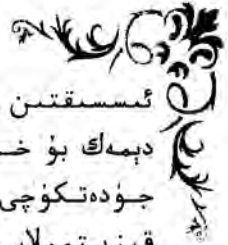 ئىسسىقتىن
دېمەك بۇ خـ
جـۈدەتكۈچى